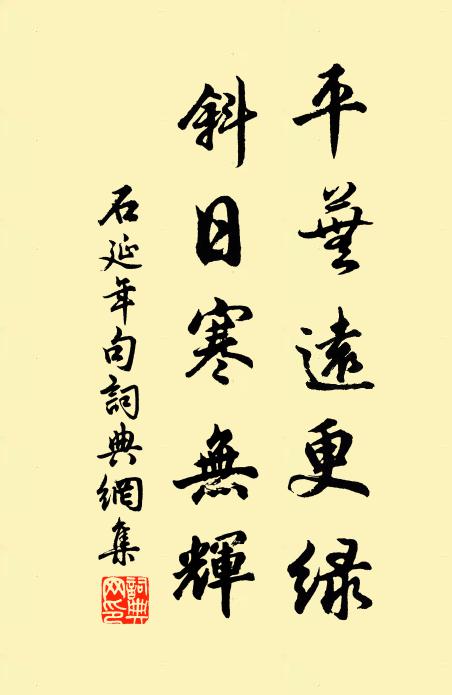 平蕪遠更緑
斜日寒無輝
石延年句詞典網集
詞典網印